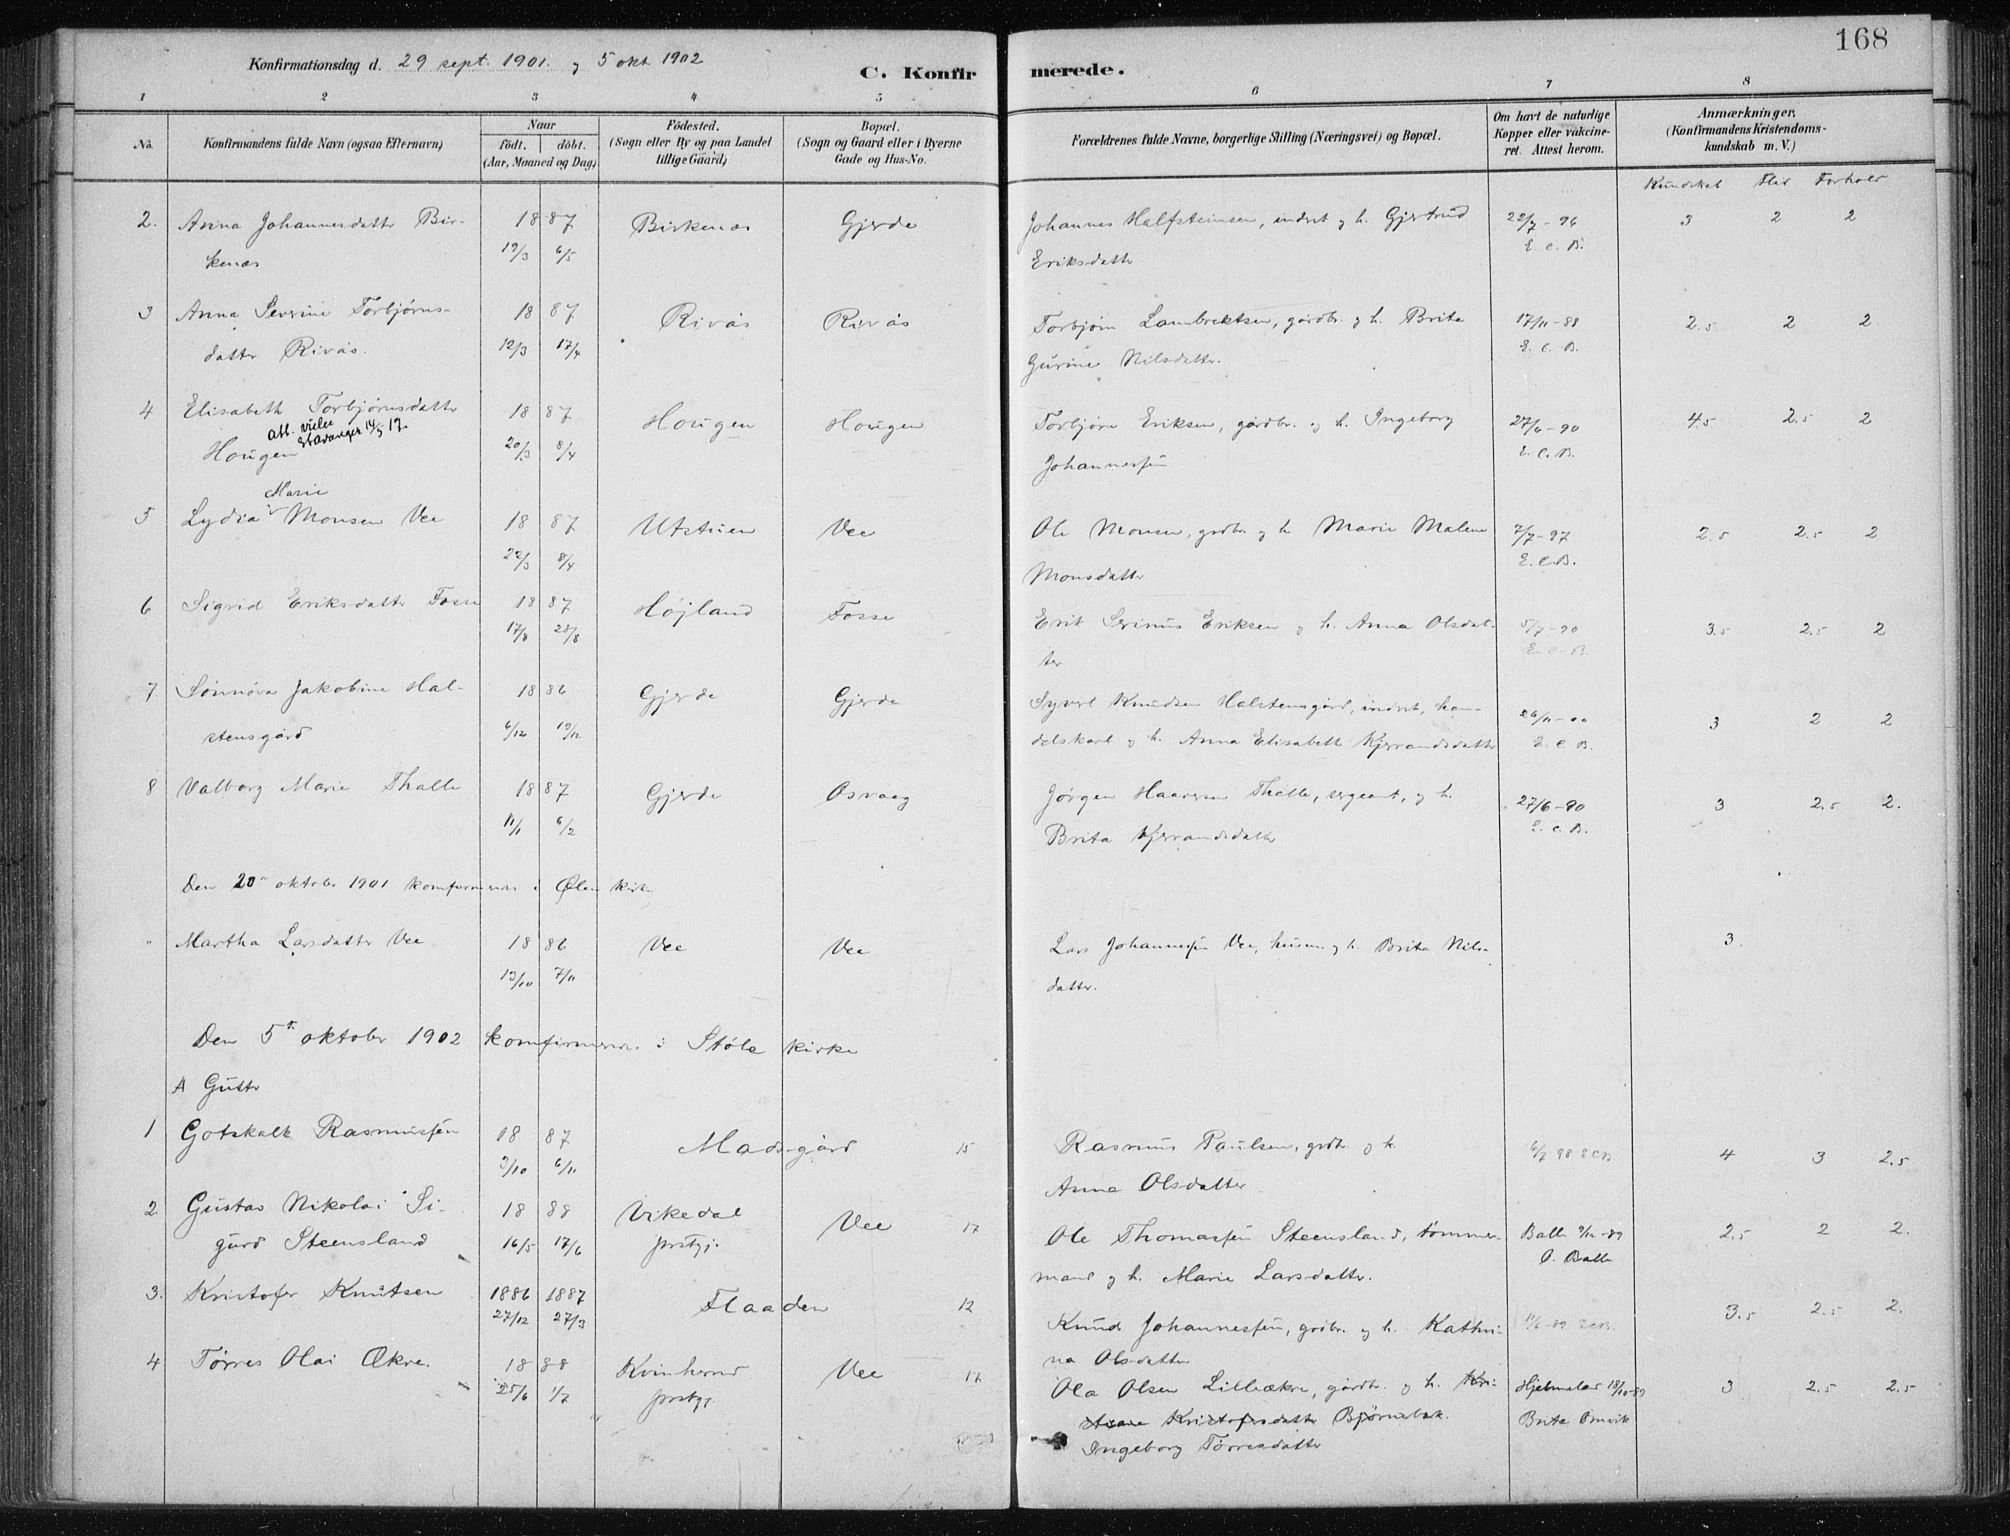 168
Konfirmationsdag d. 29 sept. 1901. og 5 okt. 1902
C. Konfirmerede.
1 2 3 4 5 6 7 8
No.
Konfirmandens fulde Navn (ogsaa Efternavn)
Naar
født. døbt.
(Aar, Maaned og Dag)
Fødested.
(Sogn eller By og paa Landet
tillige Gaard)
Bopæl.
(Sogn og Gaard eller i Byerne
Gade og Hus-No.
Forældrenes fulde Navne, borgerlige Stilling (Næringsvei) og Bopæl.
Om havt de naturlige
Kopper eller vakcine-
ret. Attest herom.
Anmærkninger.
(Konfirmandens Kristendoms-
kundskab m. V.)
Kundskab Flid Forhold
2. Anna Johannesdatter Bir- 18 87 Birkenæs Gjerde Johannes Halfsteinsen, inderst og h. Gjertrud 22/7-96 3 2 2
kenæs 19/3 6/5 Eriksdatter E. C. B.
3 Anna Severine Torbjørns- 18 87 Rivås Rivås Torbjørn Lambrektsen, gårdbr. og h. Brita 17/11-88 2.5 2 2
datter Rivås. 12/3 17/4 Gurine Nilsdatter. E. C. B.
4 Elisabeth Torbjørnsdatter 18 87 Hougen Hougen Torbjørn Eriksen, gårdbr. og h. Ingeborg 27/6-90 4.5 2.5 2
att. vielse
Stavanger 14/5 17.
Hougen 20/3 8/4 Johannessen E. C. B.
Marie
5 Lydia Monsen Vee 18 87 Utstuen Vee Ole Monsen, grdbr. og h. Marie Malene 7/7-97 2.5 2.5 2
22/3 8/4 Monsdatter E. C. B.
6 Sigrid Eriksdatter Fosse 18 87 Højland Fosse Erik Serinus Eriksen og h. Anna Olsdat- 5/7-90 3.5 2.5 2
17/8 28/8 ter E. C. B.
7 Sønnøva Jakobine Hal- 18 86 Gjerde Gjerde Syvert Knudsen Halstensgård, inderst, han- 26/11-00 3 2 2
stensgård 6/12 19/12 delskarl og h. Anna Elisabeth Kjerrandsdatter E. C. B.
8 Valborg Marie Thalle 18 87 Gjerde Osvaag Jørgen Haaversen Thalle, sergeant, og h. 27/6-90 3 2.5 2.
11/1 6/2 Brita Kjerrandsdatter E. C. B.
Den 20de oktober 1901 konfirmeres i Ølen kirke
" Martha Larsdatter Vee 18 86 Vee Vee Lars Johannessen Vee, husm. og h. Brita Nils- 3.
13/10 7/11 datter.
Den 5te oktober 1902 konfirmeres i Støle kirke
A Gutter
1 Gotskalk Rasmussen 18 87 Madsgård 15 Rasmus Paulsen, grdbr. og h. 6/7 98 ECB 4 3 2.5
3/10 6/11 Anna Olsdatter
2. Gustav Nikolai Si- 18 88 Vikedal Vee 17 Ole Thomassen Steensland, tømmer- Balle 9/12-89 2.5 2 2.
gurd Steensland 16/5 17/6 prstgj. mand og h. Marie Larsdatter. O. Balle
3. Kristofer Knutsen 1886 1887 Flaaden 12 Knud Johannessen, grdbr. og h. Kathri- 11/6-89 ECB. 3.5 2.5 2.
27/12 27/3 na Olsdatter
4 Tørres Olai Økre. 18 88 Kvinherred Vee 17 Ola Olsen Lilleækre, gårdbr. og h. Kri- Hjelmeland 18/10-89 3 2.5 2.5
25/6 1/7 prstgj. Kristofersdatter Bjørnebek. Brita Ømvik
Ingeborg Tørresdatter